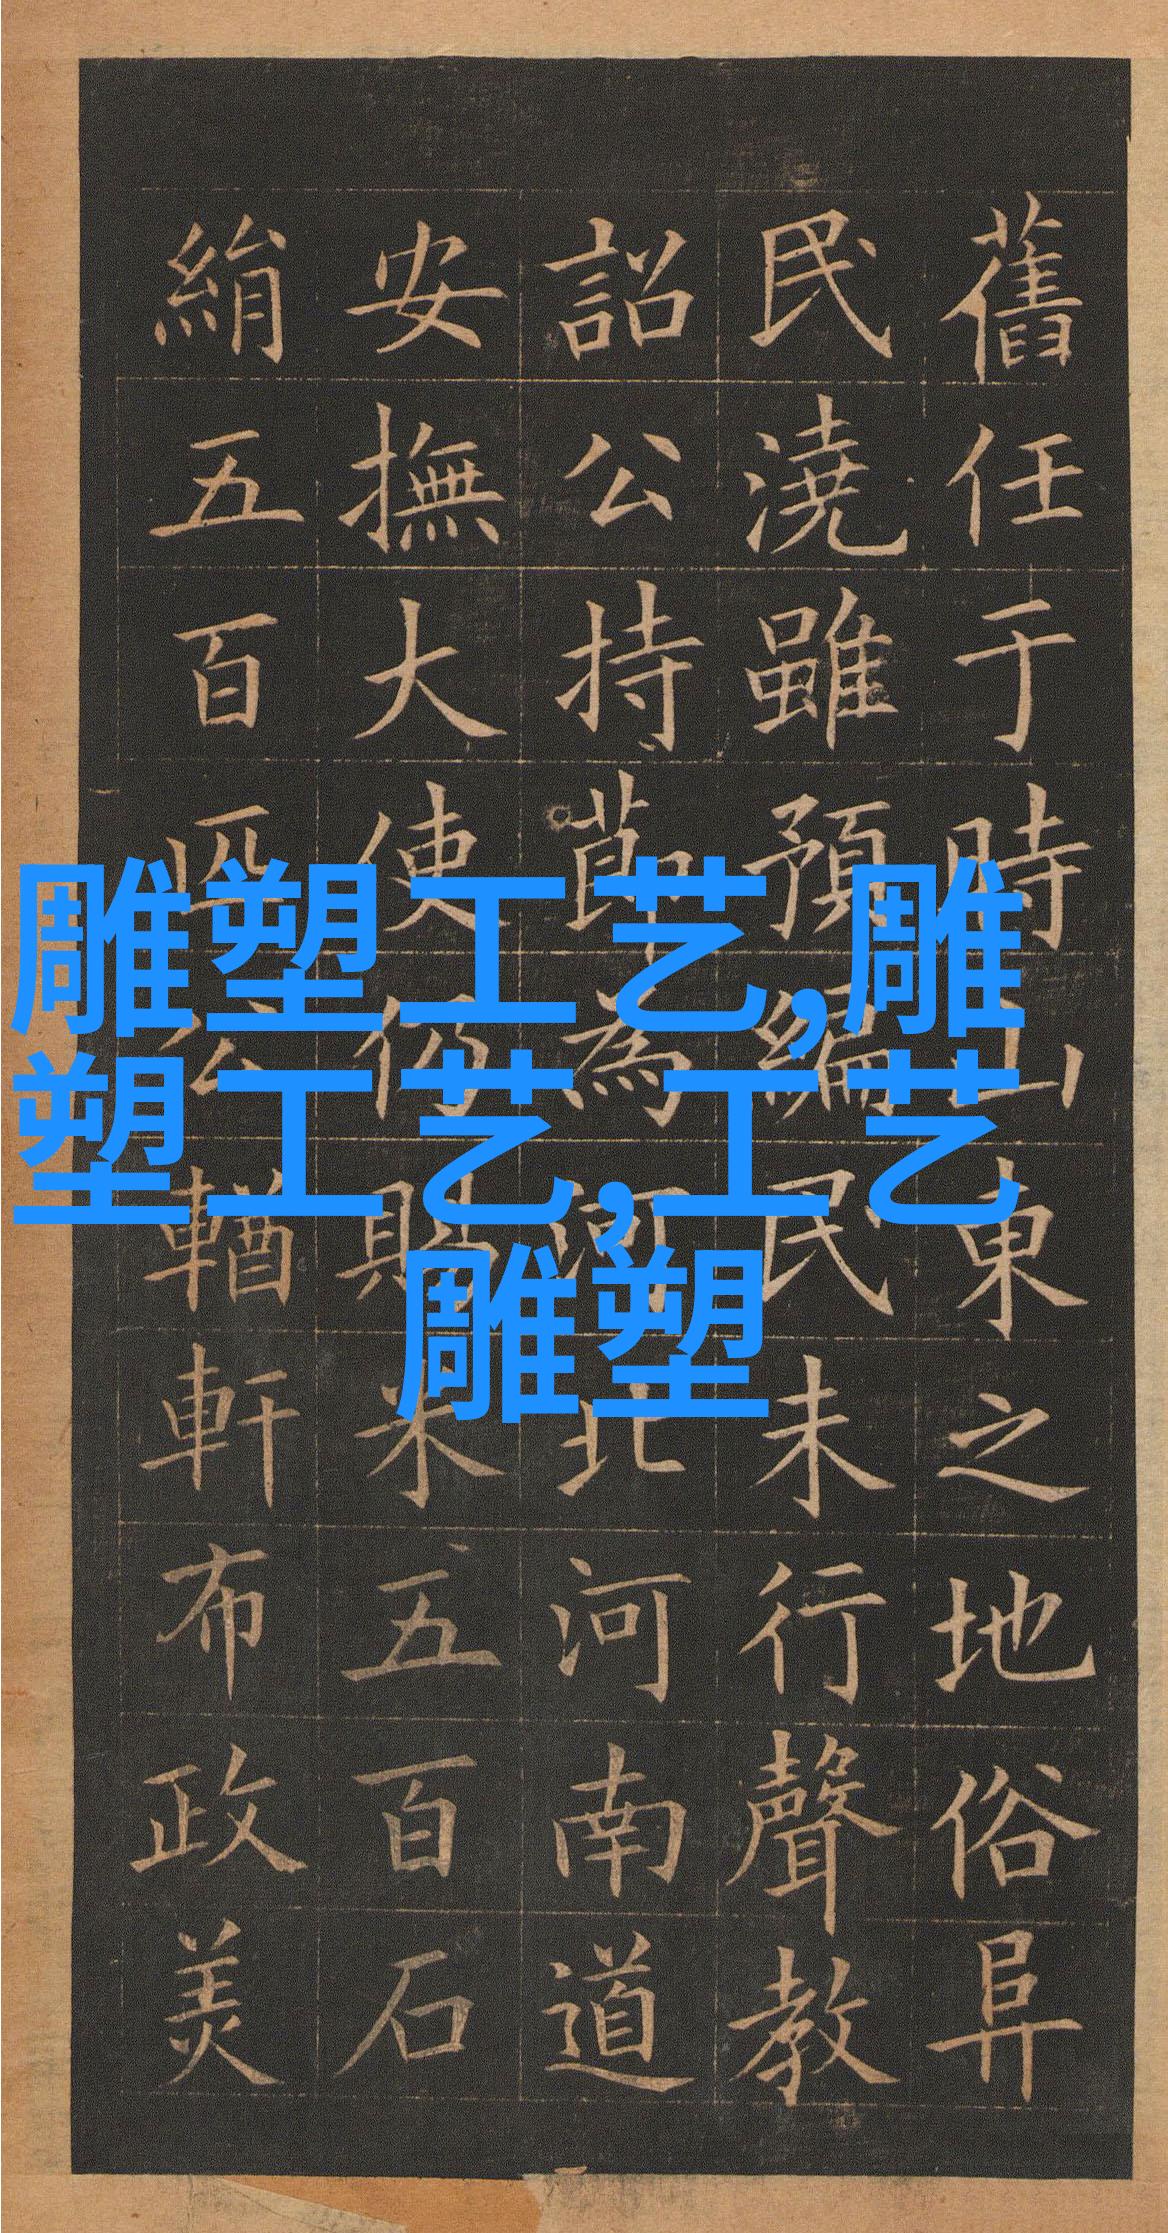 舊任于時山東之地俗阜
民澆雖預編民未行聲教
詔公持節為河北河南道
安撫大使仍賜米五百石
絹五百匹公輶軒布政美
雕塑工艺,雕
塑工艺,工艺
雕塑